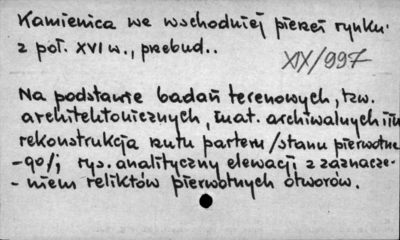 Kamienica we wschodniej pierzei rynku.
z poł. XVI w., przebud..
XIX/997
Na podstawie badań terenowych, tzw.
architektonicznych, mat. archiwalnych i
rekonstrukcja rzutu parteru /stanu pierwotne
-go/; rys. analityczny elewacji z zaznacze-
-niem reliktów pierwotnych otworów.